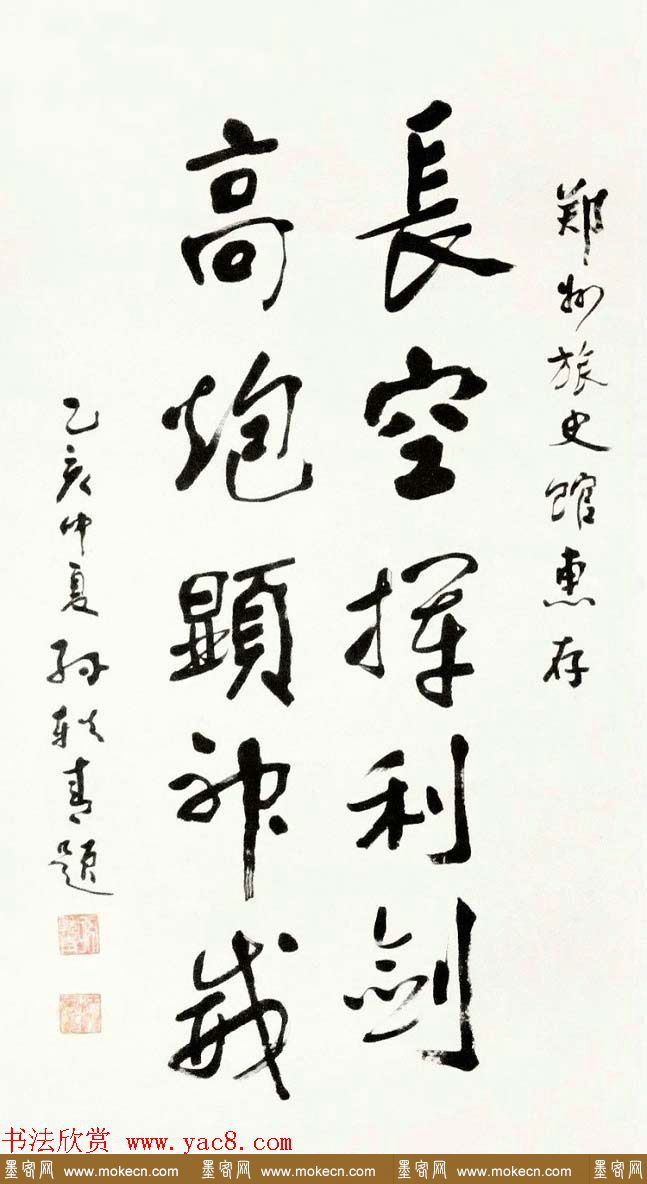 郑州旅史馆惠存
長空揮利剑
高炮顯神威
乙亥仲夏孙轶青题
书法欣赏 www.yac8.com
墨客网 www.mokecn.com 墨客网 www.mokecn.com 墨客网 www.mokecn.com 墨客网 www.mokecn.com